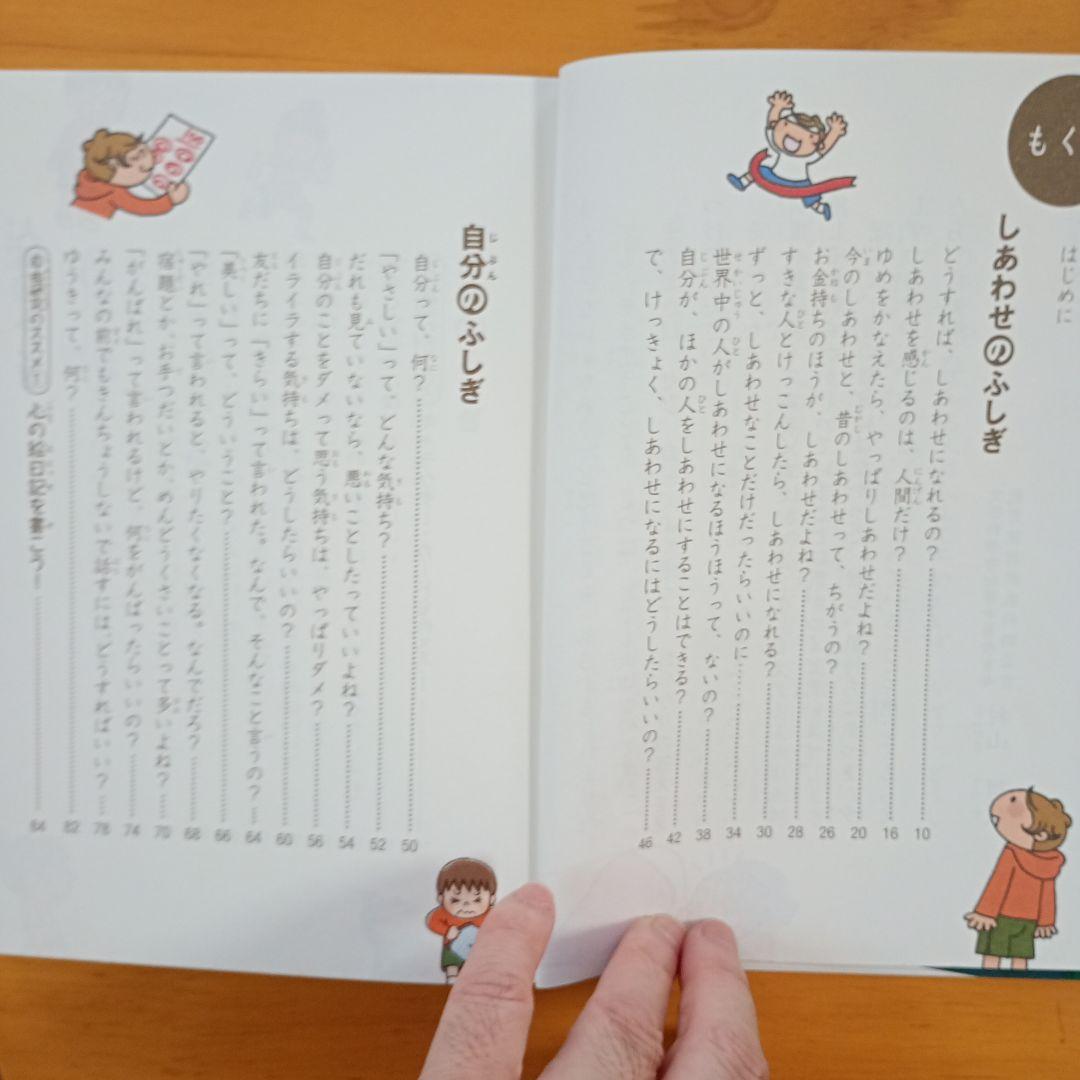 もく
はじめに
しあわせのふしぎ
どうすれば、しあわせになれるの？……10
しあわせを感じるのは、人間だけ？……16
ゆめをかなえたら、やっぱりしあわせだよね？……20
今のしあわせと、昔のしあわせって、ちがうの？……26
お金持ちのほうが、しあわせだよね？……28
すきな人とけっこんしたら、しあわせになれる？……30
ずっと、しあわせなことだけだったらいいのに……34
世界中の人がしあわせになるほうほうって、ないの？……38
自分が、ほかの人をしあわせにすることはできる？……42
で、けっきょく、しあわせになるにはどうしたらいいの？……46
自分のふしぎ
自分って、何？……50
「やさしい」って、どんな気持ち？……52
だれも見ていないなら、悪いことしたっていいよね？……54
自分のことをダメって思う気持ちは、やっぱりダメ？……56
イライラする気持ちは、どうしたらいいの？……60
友だちに「きらい」って言われた。なんで、そんなこと言うの？……64
「美しい」って、どういうこと？……66
「やれ」って言われると、やりたくなくなる。なんでだろ？……68
宿題とか、お手つだいとか、めんどうくさいことって多いよね？……70
「がんばれ」って言われるけど、何をがんばったらいいの？……74
みんなの前でもきんちょうしないで話すには、どうすればいい？……78
ゆうきって、何？……82
のススメ！ 心の絵日記を書こう！……84